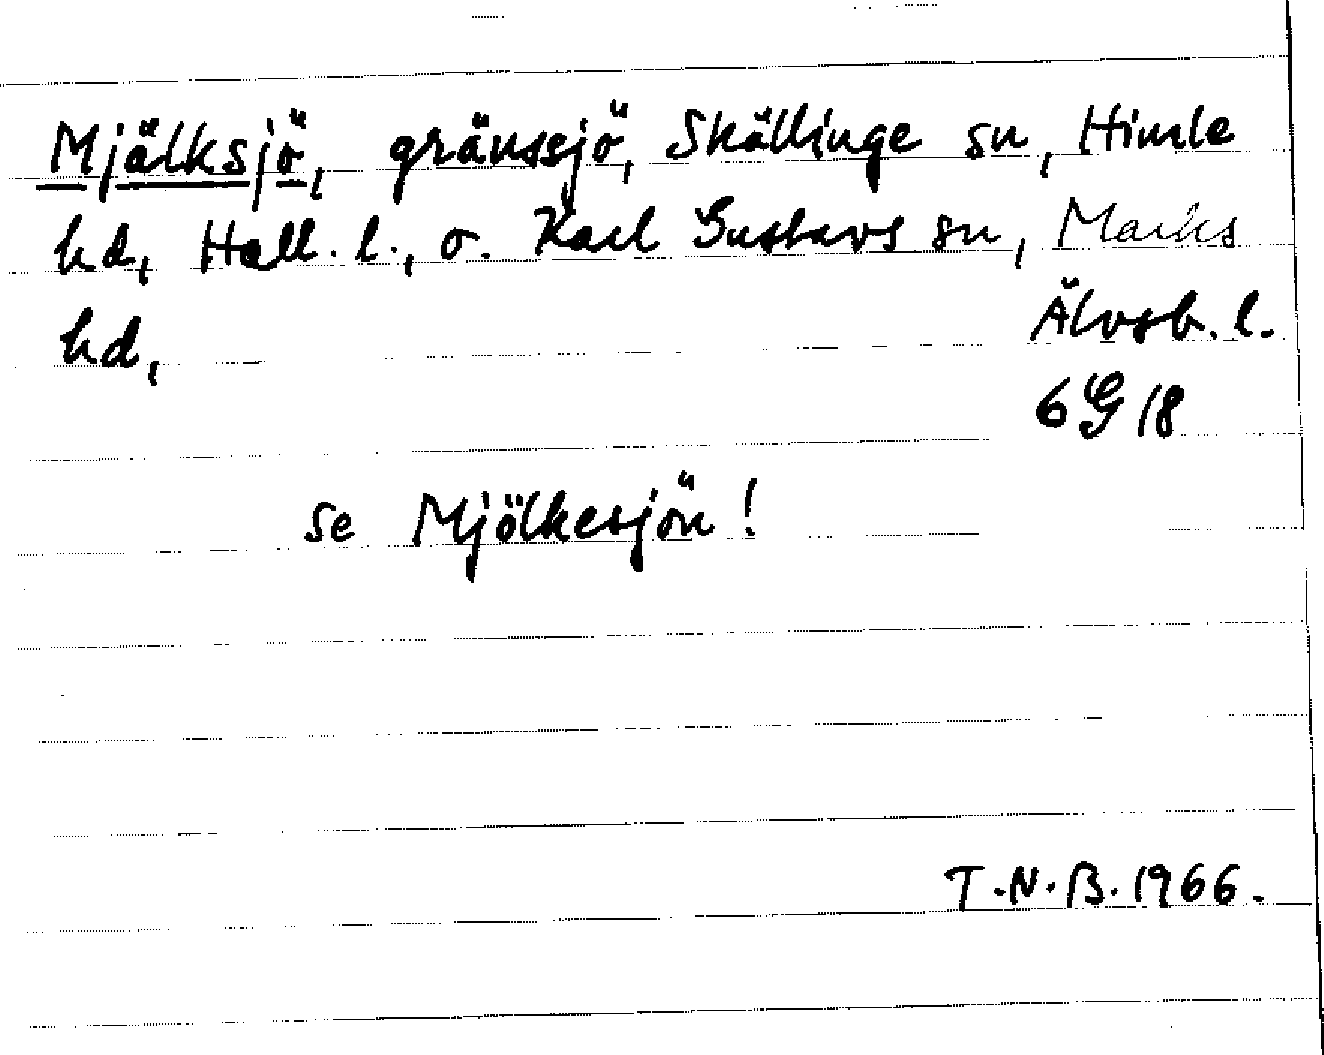 Mjälksjö, gränssjö, Skällinge sn, Himle
hd, Hall. l., o. Karl Gustavs sn, Marks
hd, Älvsb. l.
6G 18
se Mjölkesjön!
T.N.B. 1966.